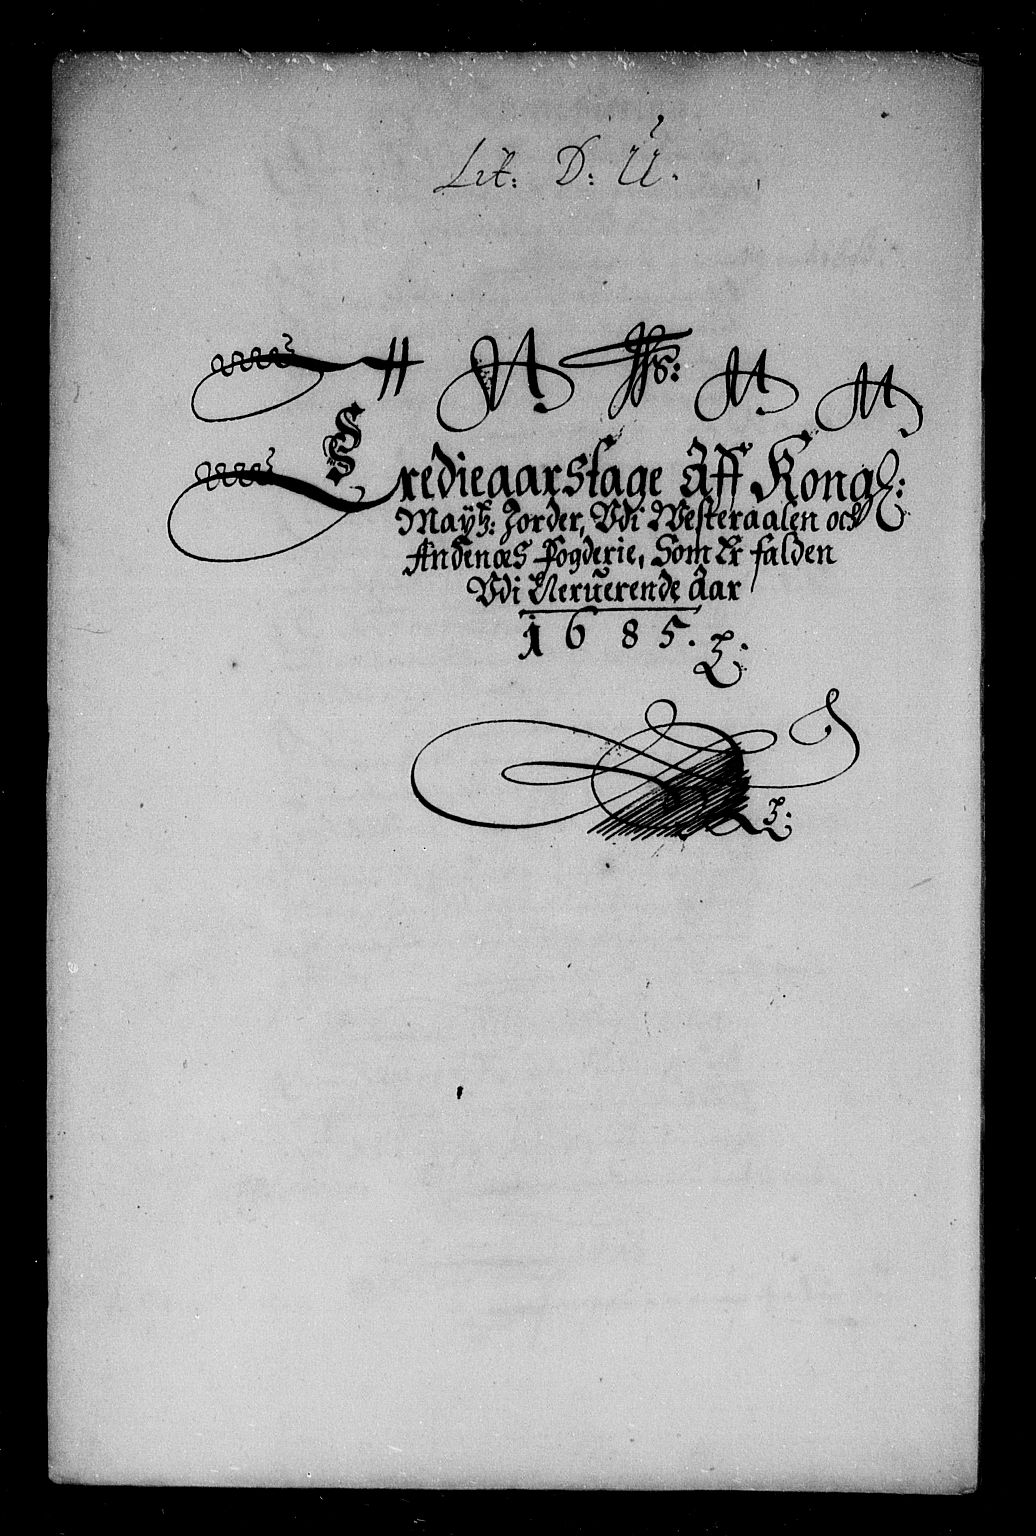 Lit: D: Ü.
Tredieaarstage Aff Kongl:
Mayts: Jorder, Vdi Westeraalen och
Andenæs Fogderie, Som Er falden
Vdi Neruerende Aar
1685.